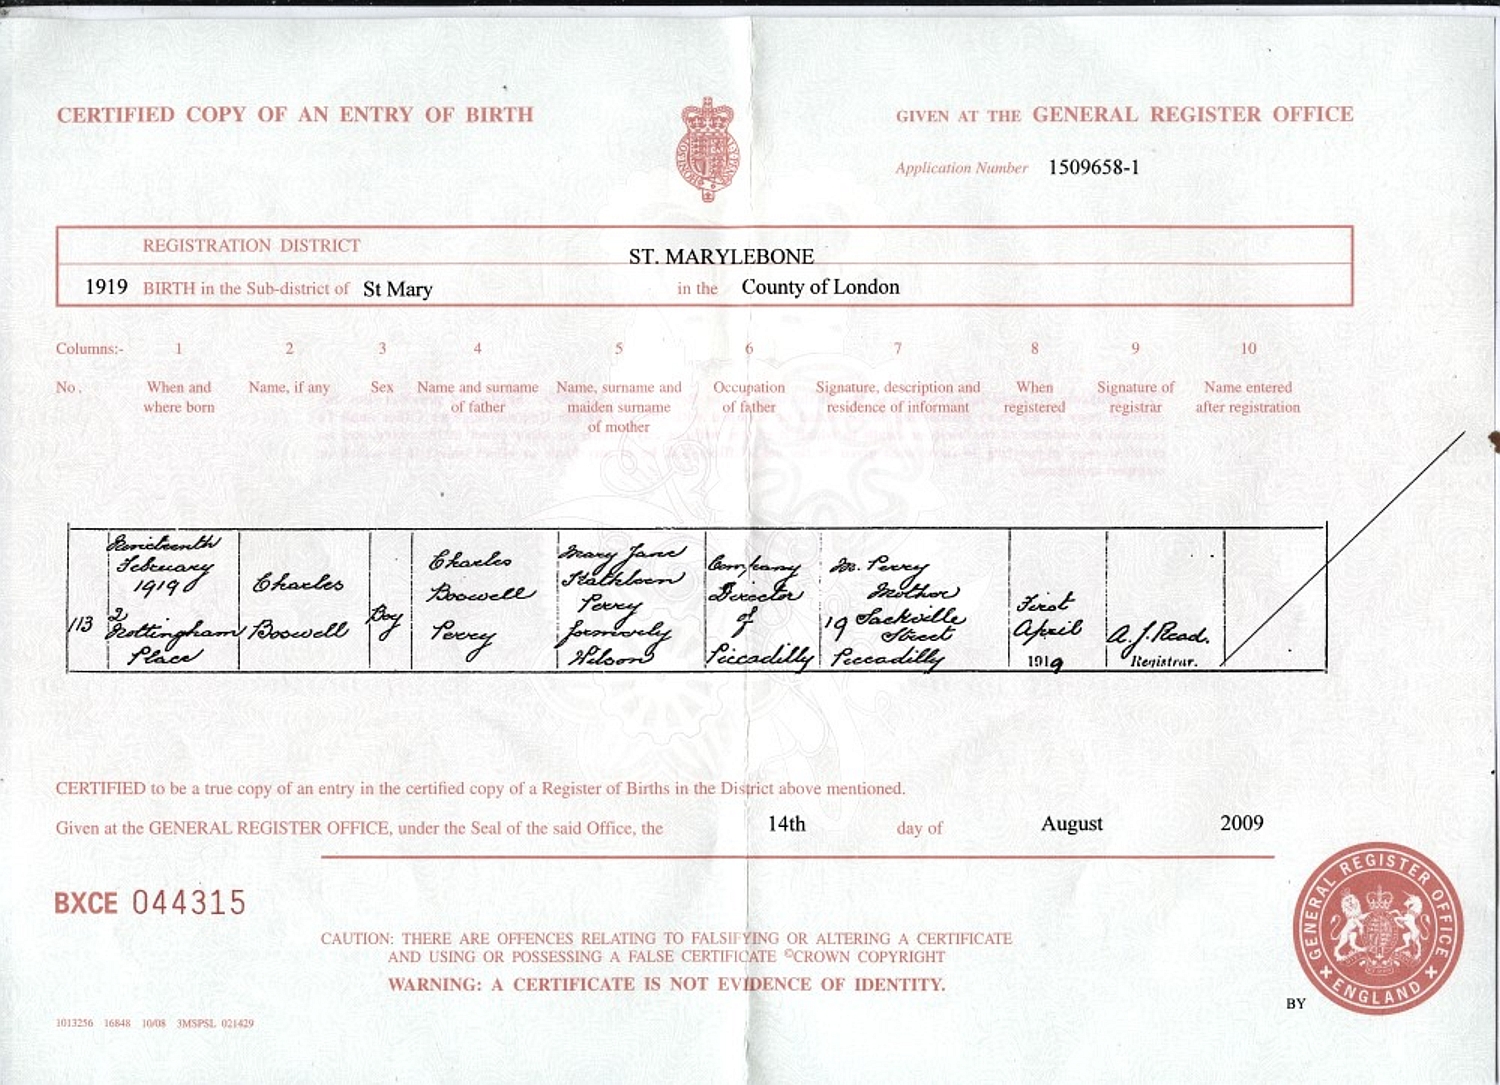 CERTIFIED COPY OF AN ENTRY OF BIRTH
GIVEN AT THE GENERAL REGISTER OFFICE
Application Number 1509658-1
REGISTRATION DISTRICT
ST. MARYLEBONE
1919 BIRTH in the Sub-district of St Mary in the County of London
Columns:- 1 2 3 4 5 6 7 8 9 10
No. When and where born
Name, if any
Sex
Name and surname of father
Name, surname and maiden surname of mother
Occupation of father
Signature, description and residence of informant
When registered
Signature of registrar
Name entered after registration
113
Nineteenth
February
1919
2
Nottingham
Place
Charles
Boswell
Boy
Charles
Boswell
Perry
Mary Jane
Kathleen
Perry
formerly
Wilson
Company
Director
of
Piccadilly
M. Perry
Mother
19 Sackville
Street
Piccadilly
First
April
1919
A. J. Read.
Registrar.
CERTIFIED to be a true copy of an entry in the certified copy of a Register of Births in the District above mentioned.
Given at the GENERAL REGISTER OFFICE, under the Seal of the said Office, the 14th day of August 2009
BXCE 044315
CAUTION: THERE ARE OFFENCES RELATING TO FALSIFYING OR ALTERING A CERTIFICATE
AND USING OR POSSESSING A FALSE CERTIFICATE ©CROWN COPYRIGHT
WARNING: A CERTIFICATE IS NOT EVIDENCE OF IDENTITY.
GENERAL REGISTER OFFICE
ENGLAND
BY
1013256 16848 10/08 3MSPSL 021429